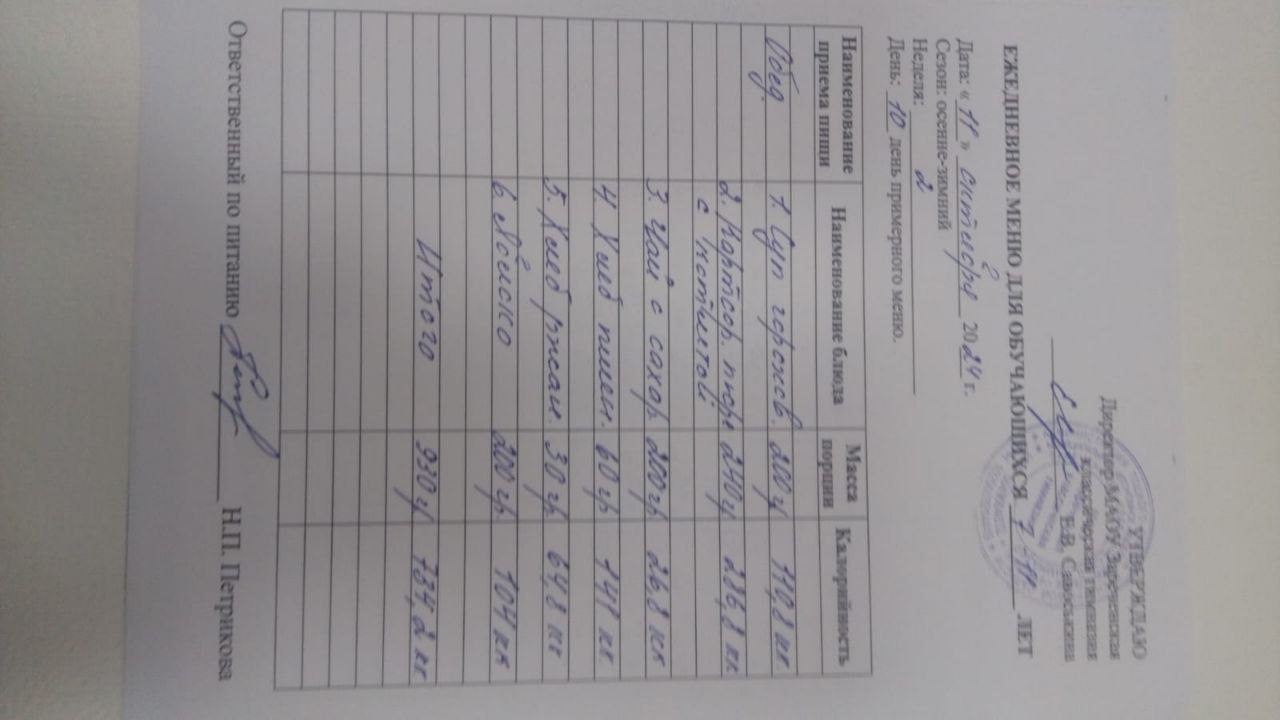 УТВЕРЖДАЮ
Директор МАОУ Зареченская
казачья кадетская гимназия
Е.В. Савоськина
ЕЖЕДНЕВНОЕ МЕНЮ ДЛЯ ОБУЧАЮЩИХСЯ 7-11 ЛЕТ
Дата: « 11 » октября 2024 г.
Сезон: осенне-зимний
Неделя: 2
День: 10 день примерного меню.
Наименование приема пищи Наименование блюда Масса порции Калорийность
Обед. 1. Суп горохов. 200 гр 110,8 кк
2. Картоф. пюре 240 гр 286,8 кк
с котлетой
3. Чай с сахар. 200 гр 26,8 кк
4. Хлеб пшен. 60 гр 141 кк
5. Хлеб ржан. 30 гр 64,8 кк
6. Яблоко 200 гр. 104 кк
Итого 930 гр 734,2 кк
Ответственный по питанию Н.П. Петрикова